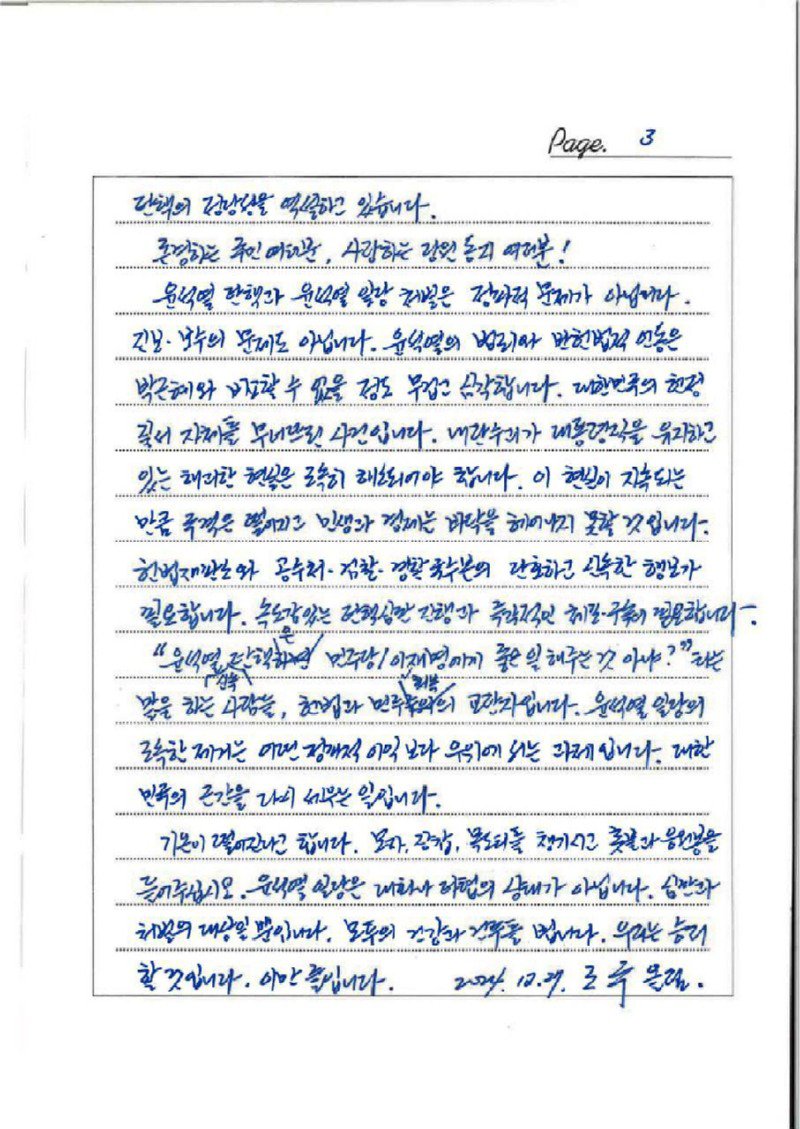 Page. 3
탄핵의 정당성을 역설하고 있습니다.
존경하는 국민 여러분, 사랑하는 당원 동지 여러분!
윤석열 탄핵과 윤석열 일당 처벌은 정파적 문제가 아닙니다.
진보·보수의 문제도 아닙니다. 윤석열의 범죄와 반헌법적 언동은
박근혜와 비교할 수 없을 정도 무겁고 심각합니다. 대한민국의 헌정
질서 자체를 무너뜨린 사건입니다. 내란수괴가 대통령직을 유지하고
있는 해괴한 현실은 조속히 해소되어야 합니다. 이 현실이 지속되는
만큼 국격은 떨어지고 민생과 경제는 바닥을 헤어나지 못할 것입니다.
헌법재판소와 공수처·검찰·경찰 국수본의 단호하고 신속한 행보가
필요합니다. 속도감있는 탄핵심판 진행과 즉각적인 체포·구속이 필요합니다.
은
"윤석열 탄핵하면 민주당/이재명에게 좋은 일 해주는 것 아냐?"라는
신속 회복
말을 하는 사람들, 헌법과 민주주의의 교란자입니다. 윤석열 일당의
조속한 제거는 어떤 정개적 이익보다 우위에 서는 과제입니다. 대한
민국의 근간을 다시 세우는 일입니다.
기온이 떨어진다고 합니다. 모자, 장갑, 목도리를 챙기시고 촛불과 응원봉을
들어주십시오. 윤석열 일당은 대화나 타협의 상대가 아닙니다. 심판과
처벌의 대상일 뿐입니다. 모두의 건강과 건투를 빕니다. 우리는 승리
할 것입니다. 이만 줄입니다. 2024. 12. 27. 조 국 올림.